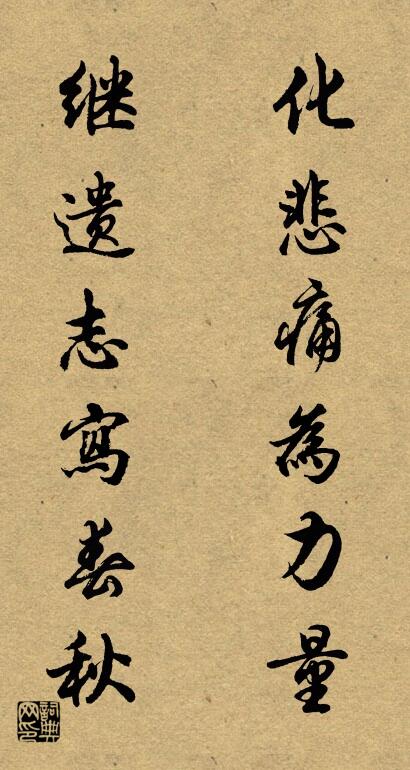 化悲痛為力量
继遗志寫春秋
詞典网印